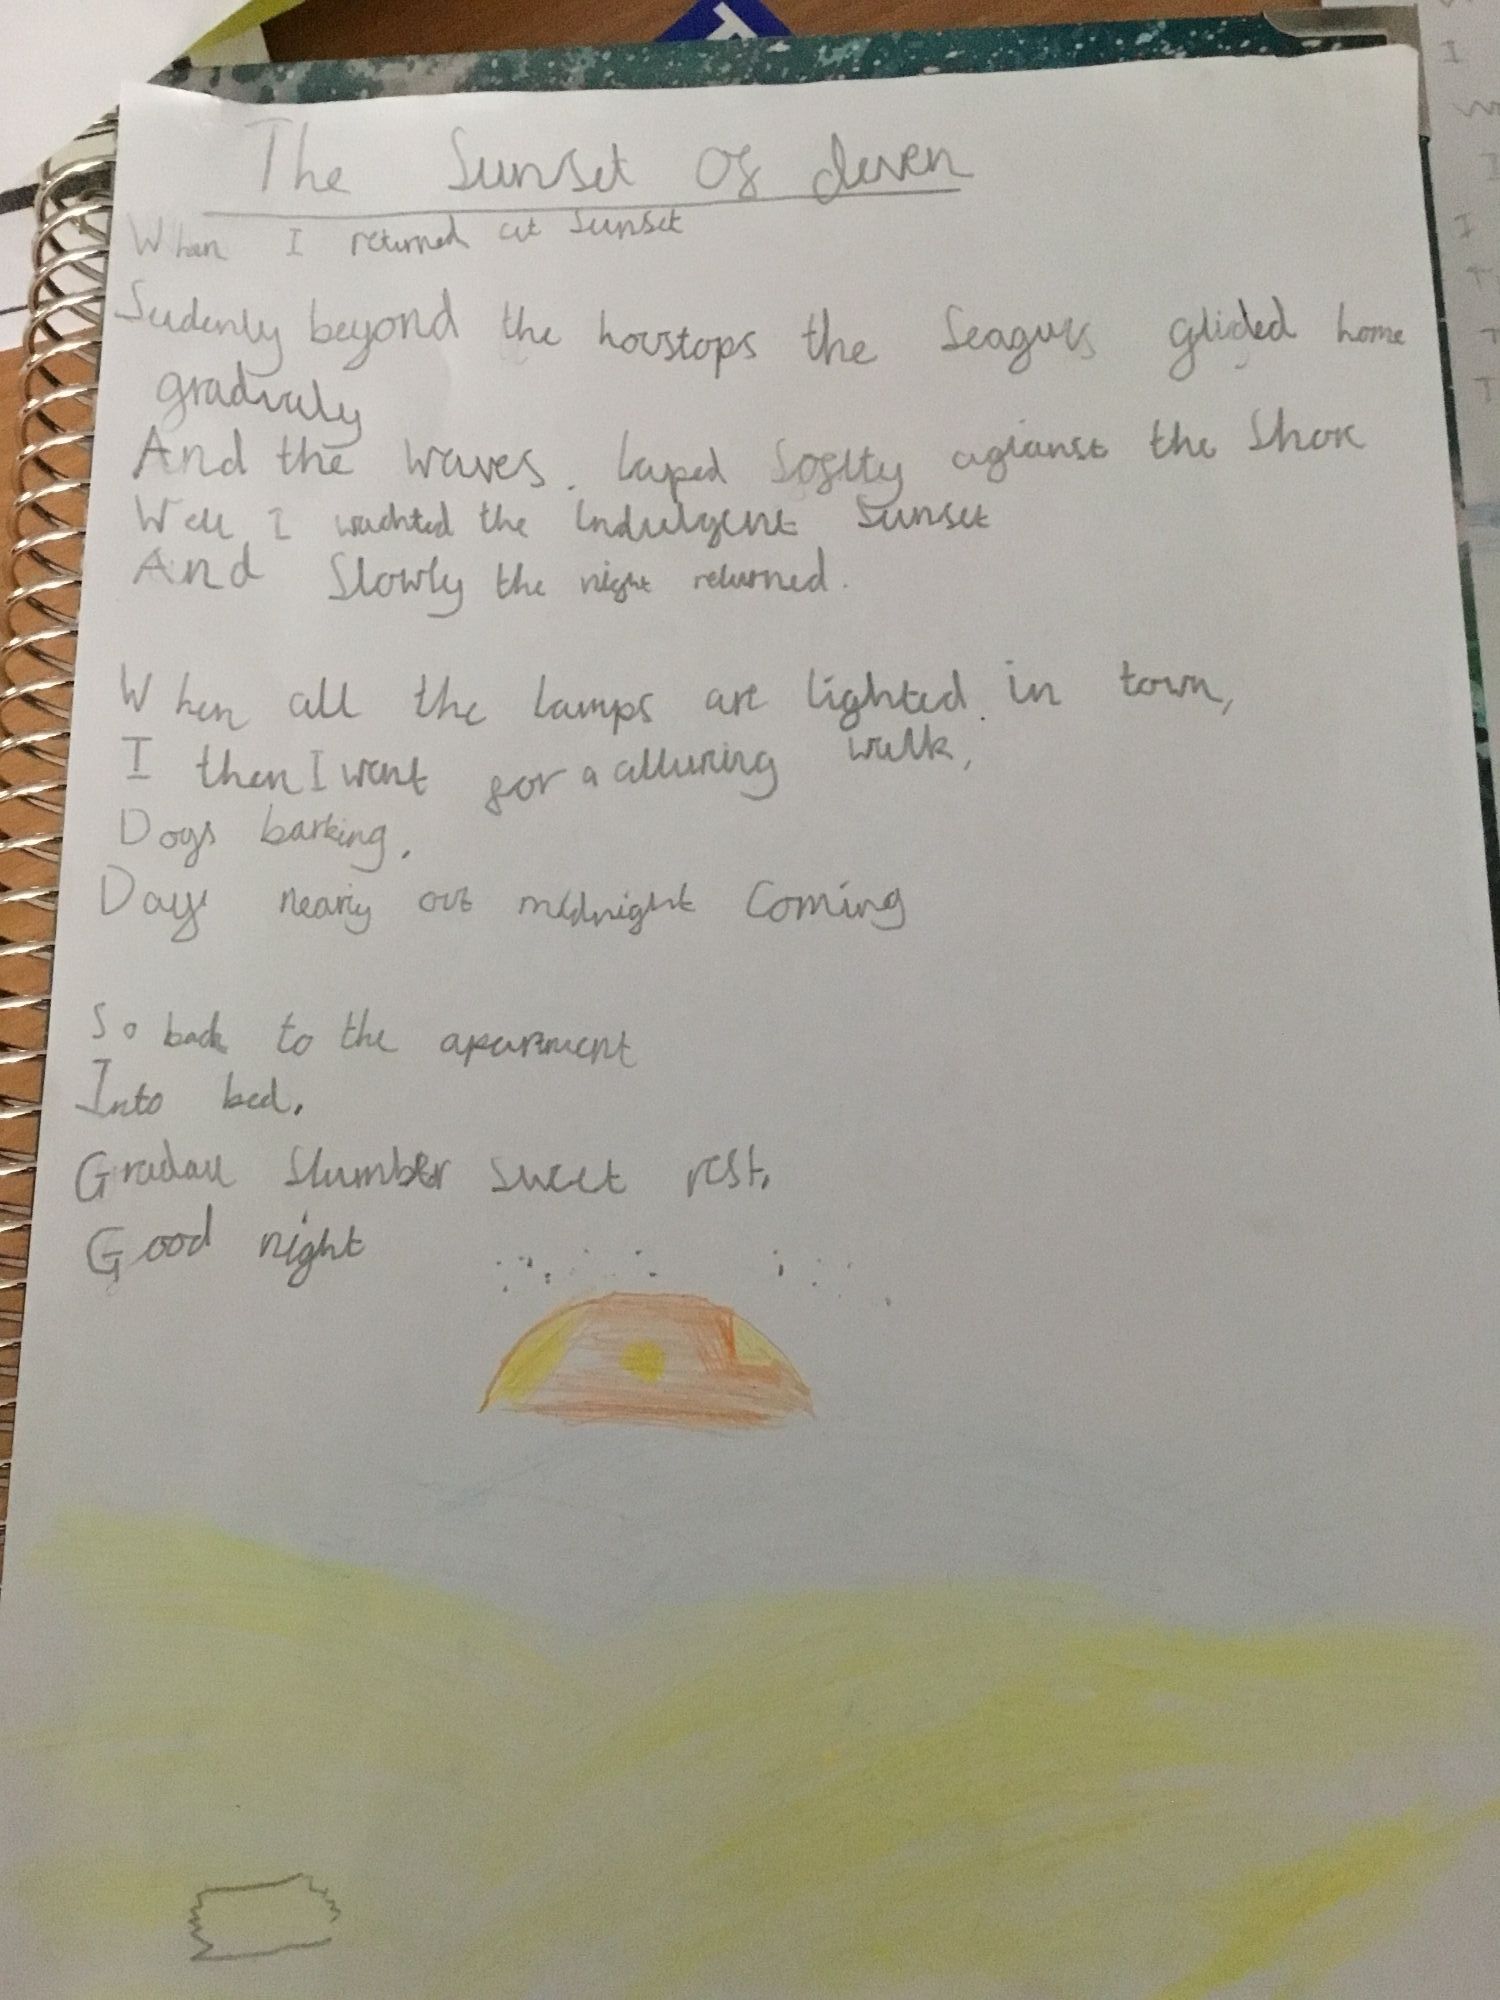 The Sunset Of deven
When I returned at Sunset
Sudenly beyond the houstops the Seagulls glided home
gradualy
And the waves. laped Soflty agianst the Shore
Well I wachted the indulgent Sunset
And Slowly the night returned.
When all the lamps are lighted. in town,
I then I went for a alluring walk,
Dogs barking.
Days nearly out midnight Coming
So back to the apartment
Into bed.
Gradall Slumber sweet rest.
Good night